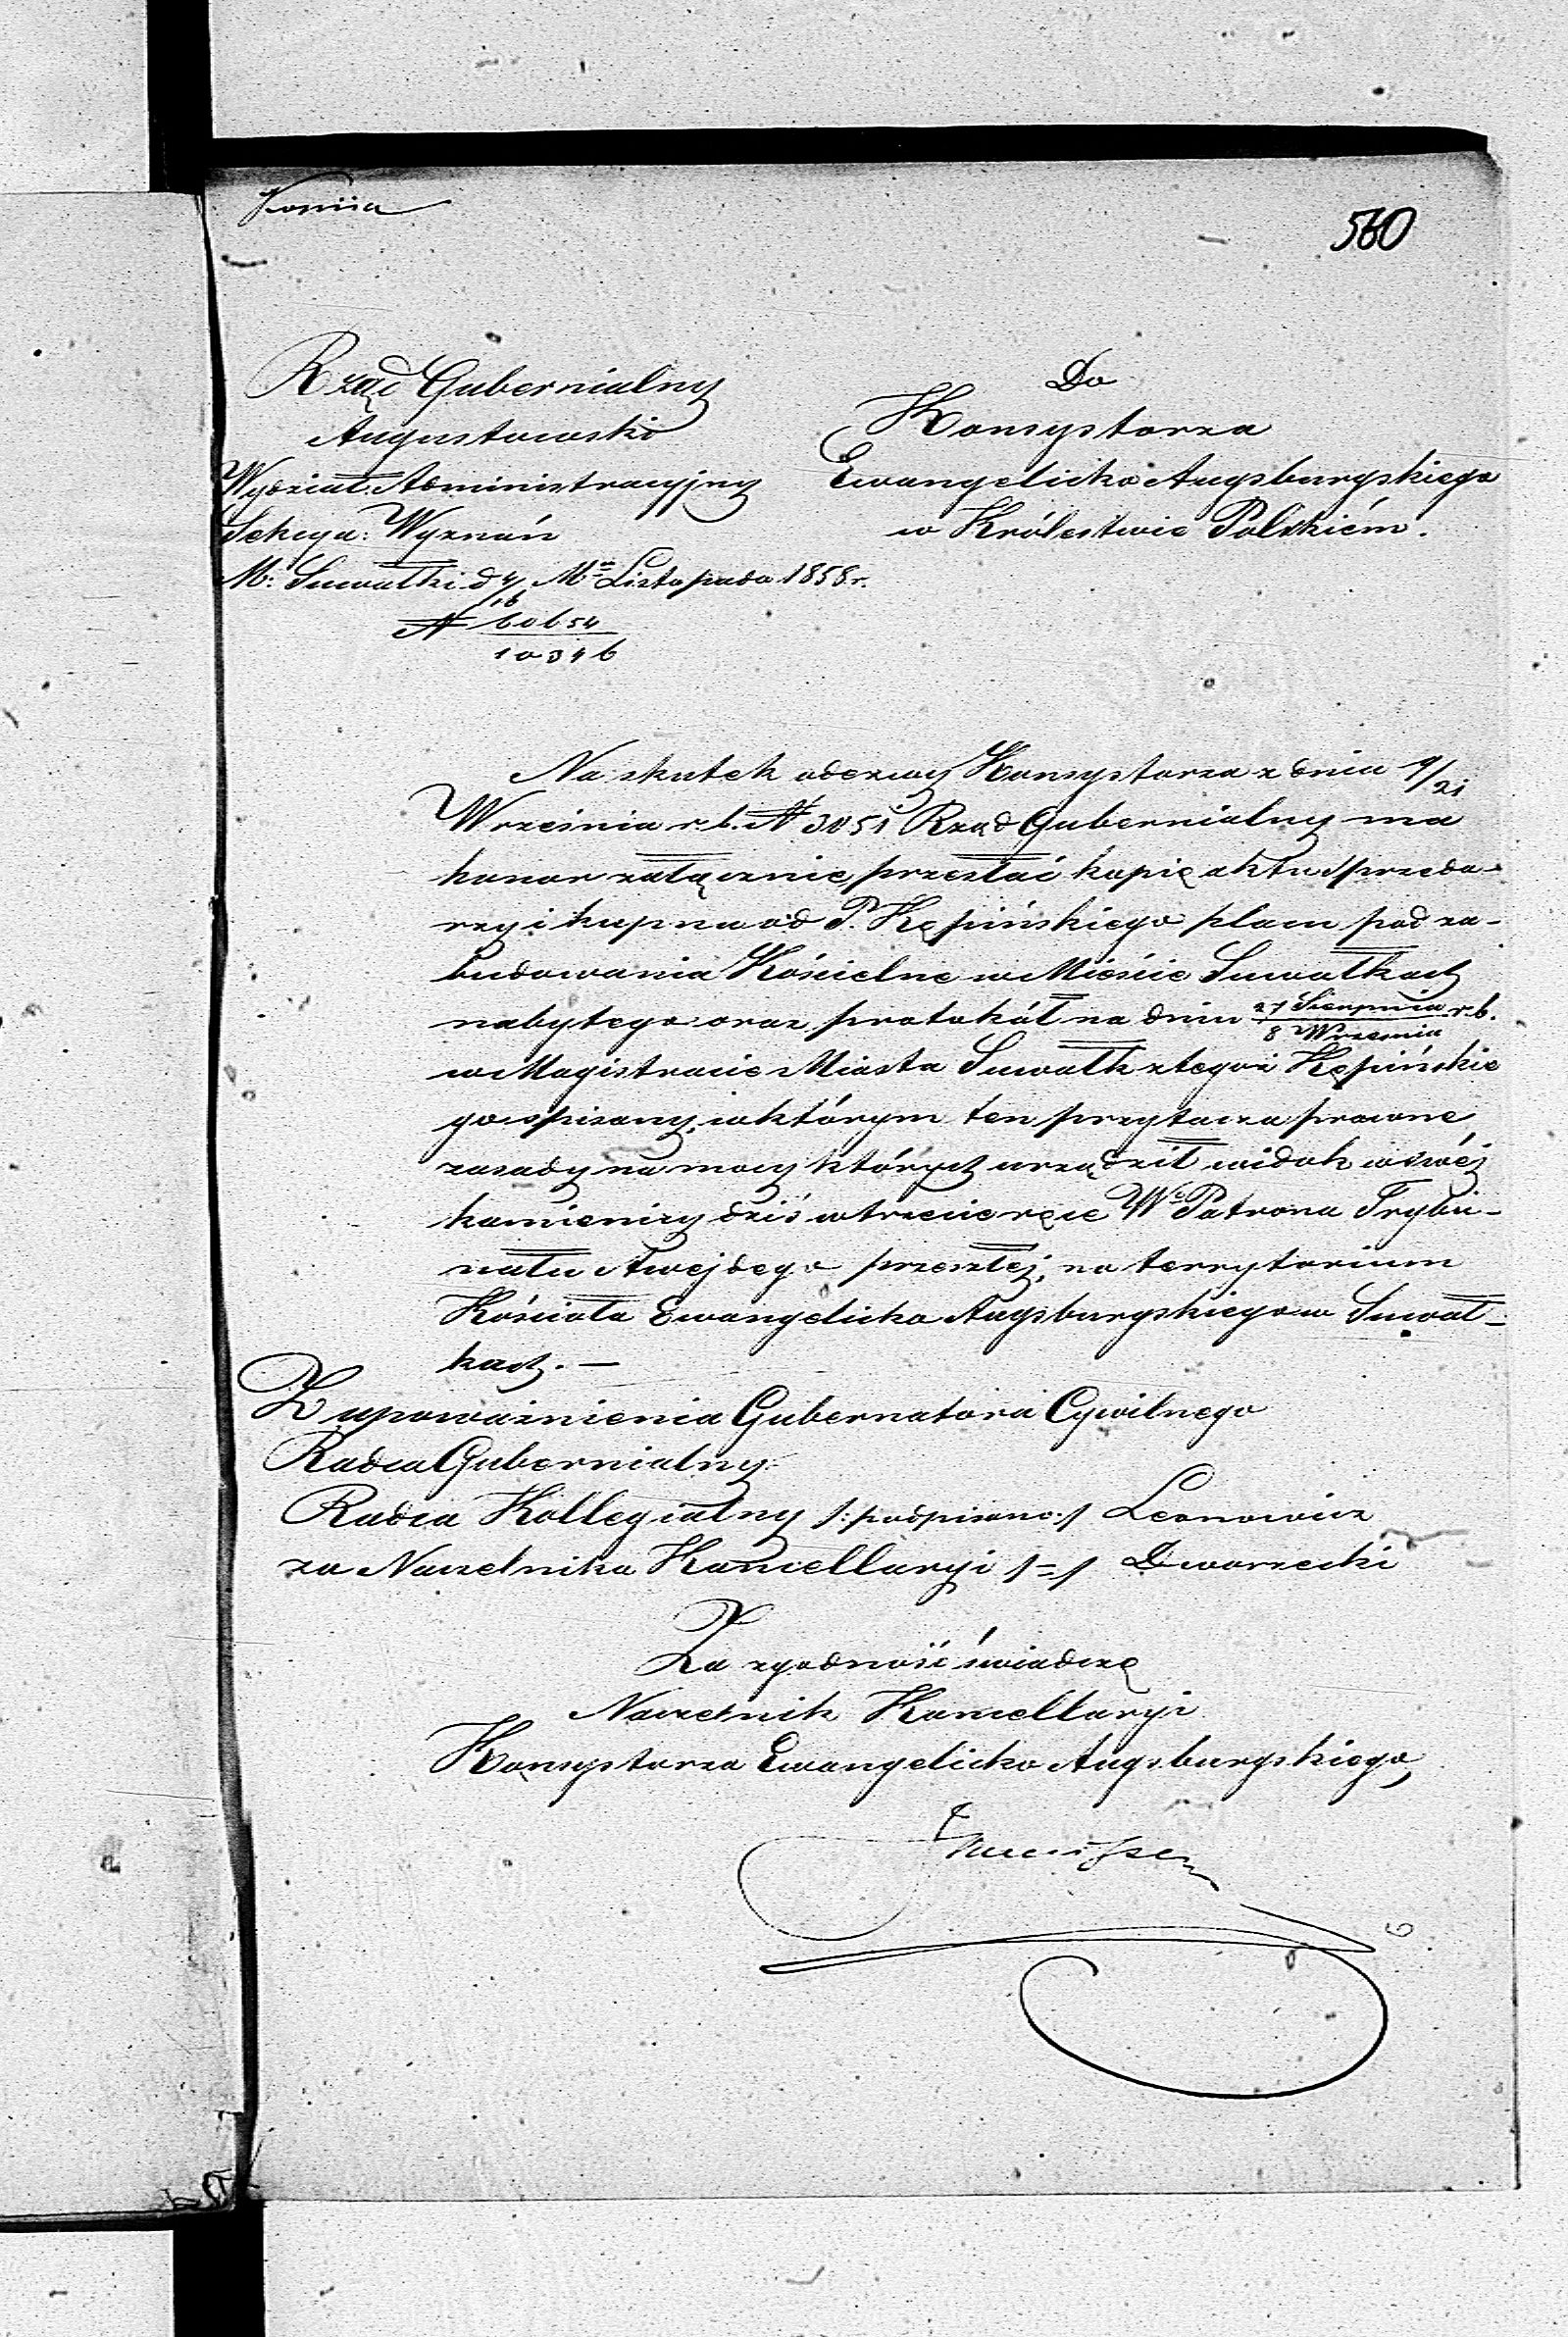 Kopiia
560
Rząd Gubernialny
Augustowski
Wydział Administracyjny
Sekcya: Wyznań
M: Suwałki d 4/16 Mca Listopada 1858 r.
N 60654
10346
Do
Konsystorza
Ewangelicko Augsburgskiego
w Królestwie Polskiém.
Na skutek odezwy Konsystorza z dnia 9/21
Września r. b. N 3051 Rząd Gubernialny ma
honor załącznie przesłać kopię aktu sprzeda-
rzy i kupna od P. Kępińskiego placu pod za-
budowania Kościelne w Mieście Suwałkach
nabytego oraz protokół na dniu 27 Sierpnia/8 Września r.b.
w Magistracie Miasta Suwałk z tegoż Kępińskie
go spisany, w którym ten przytacza prawne
zasady na mocy których urządził widok w swéj
kamienicy dziś w trzecie ręce Wo Patrona Trybu-
nału Awejdego przeszłéj, na terrytorium
Kościoła Ewangelicko Augsburgskiego w Suwał-
kach. —
Z upoważnienia Gubernatora Cywilnego
Radca Gubernialny
Radca Kollegialny /: podpisano :/ Leonowicz
za Naczelnika Kancellaryi /=/ Dworzecki
Za zgodność świadczę
Naczelnik Kancellaryi
Konsystorza Ewangelicko Augsburgskiego,